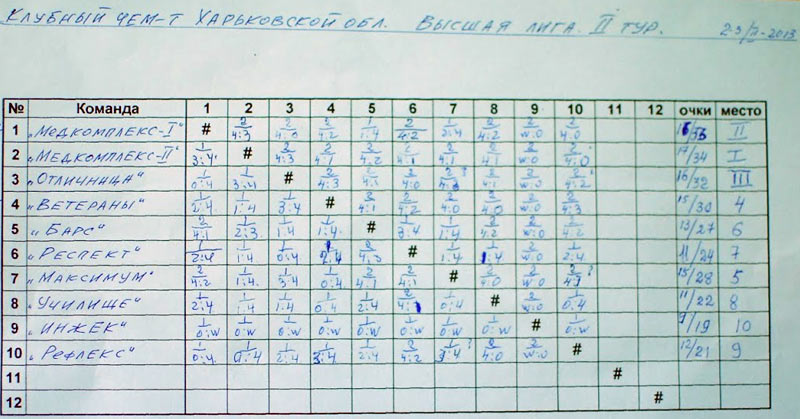 КЛУБНЫЙ ЧЕМ-Т ХАРЬКОВСКОЙ ОБЛ. ВЫСШАЯ ЛИГА. II ТУР. 2-3/II-2013
№ Команда 1 2 3 4 5 6 7 8 9 10 11 12 очки место
1 „МЕДКОМПЛЕКС-I" # 2 4:3 2 4:0 2 4:2 1 1:4 2 4:2 1 2:4 2 4:2 2 w:0 2 4:0 16/33 II
2 „МЕДКОМПЛЕКС-II" 1 3:4 # 2 4:3 2 4:1 2 4:2 2 4:1 2 4:1 2 4:1 2 w:0 2 4:0 17/34 I
3 „ОТЛИЧНИЦА" 1 0:4 1 3:4 # 2 4:3 2 4:1 2 4:0 2 4:3 2 4:1 2 w:0 2 4:2 16/32 III
4 „ВЕТЕРАНЫ" 1 2:4 1 1:4 1 3:4 # 2 4:1 2 4:2 2 4:0 2 4:0 2 w:0 2 4:3 15/30 4
5 „БАРС" 2 4:1 1 2:3 1 1:4 1 1:4 # 1 3:4 1 1:4 2 4:2 2 w:0 2 4:2 13/27 6
6 „РЕСПЕКТ" 1 2:4 1 1:4 1 0:4 1 2:4 2 4:3 # 1 1:4 1 1:4 2 w:0 1 2:4 11/24 7
7 „МАКСИМУМ" 2 4:2 1 1:4 1 3:4 1 0:4 2 4:1 2 4:1 # 2 4:0 2 w:0 2 4:3 ? 15/28 5
8 „УЧИЛИЩЕ" 1 2:4 1 1:4 1 1:4 1 0:4 1 2:4 2 4:1 1 0:4 # 2 w:0 1 0:4 11/22 8
9 „ИНЖЕК" 1 0:w 1 0:w 1 0:w 1 0:w 1 0:w 1 0:w 1 0:w 1 0:w # 1 0:w 9/19 10
10 „РЕФЛЕКС" 1 0:4 1 0:4 1 2:4 1 3:4 1 2:4 2 4:2 1 3:4 ? 2 4:0 2 w:0 # 12/21 9
11 #
12 #